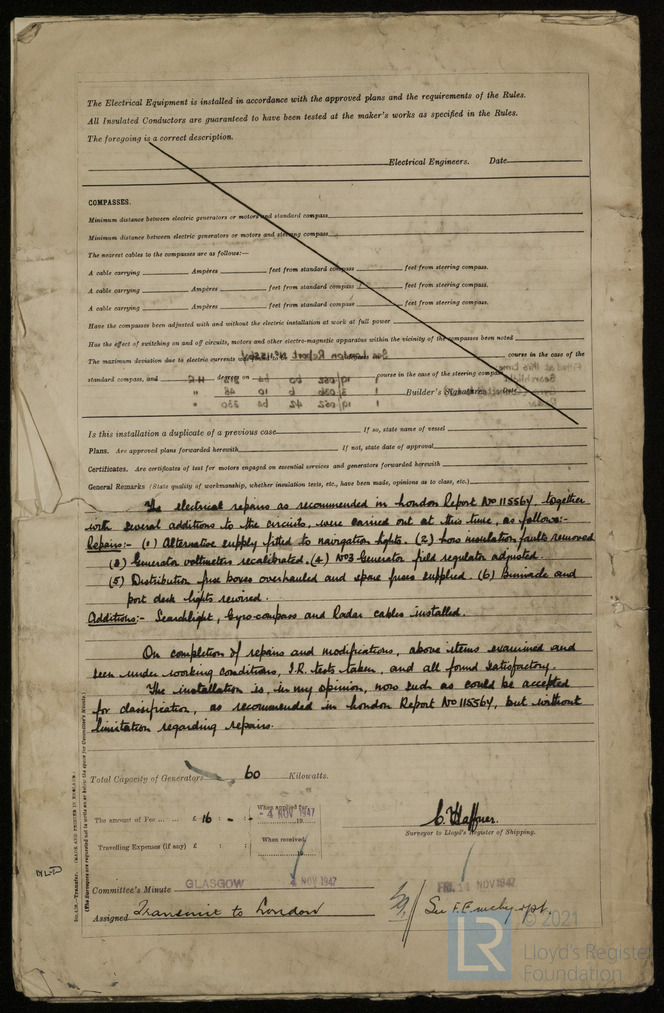 The Electrical Equipment is installed in accordance with the approved plans and the requirements of the Rules.
All Insulated Conductors are guaranteed to have been tested at the maker's works as specified in the Rules.
The foregoing is a correct description.
Electrical Engineers. Date
COMPASSES.
Minimum distance between electric generators or motors and standard compass
Minimum distance between electric generators or motors and steering compass
The nearest cables to the compasses are as follows:—
A cable carrying Ampères feet from standard compass feet from steering compass.
A cable carrying Ampères feet from standard compass feet from steering compass.
A cable carrying Ampères feet from standard compass feet from steering compass.
Have the compasses been adjusted with and without the electric installation at work at full power
Has the effect of switching on and off circuits, motors and other electro-magnetic apparatus within the vicinity of the compasses been noted
The maximum deviation due to electric currents course in the case of the
standard compass, and degrees on course in the case of the steering compass.
Builder's Signature. Date
Is this installation a duplicate of a previous case If so, state name of vessel
Plans. Are approved plans forwarded herewith If not, state date of approval
Certificates. Are certificates of test for motors engaged on essential services and generators forwarded herewith
General Remarks (State quality of workmanship, whether insulation tests, etc., have been made, opinions as to class, etc.)
The electrical repairs as recommended in London Report No 115564 together
with several additions to the circuits, were carried out at this time, as follows:-
Repairs:- (1) Alternative supply fitted to navigation lights. (2) Low insulation faults removed
(3) Generator voltmeters recalibrated. (4) No3 Generator field regulator adjusted.
(5) Distribution fuse boxes overhauled and spare fuses supplied. (6) Binnacle and
port deck lights rewired.
Additions:- Searchlight, Gyro-compass and Radar cables installed.
On completion of repairs and modifications, above items examined and
seen under working conditions, I.R. tests taken, and all found satisfactory.
The installation is, in my opinion, now such as could be accepted
for classification, as recommended in London Report No 115564, but without
limitation regarding repairs.
Total Capacity of Generators 60 Kilowatts.
The amount of Fee ... ... £ 16 : - : -
When applied for,
- 4 NOV 1947
C. Haffner.
Surveyor to Lloyd's Register of Shipping.
Travelling Expenses (if any) £ : :
When received,
19
Committee's Minute GLASGOW 4 NOV 1947
FRI. 14 NOV 1947
Assigned Transmit to London
See F.E. mchy. rpt.
© 2021
LR
Lloyd's Register
Foundation